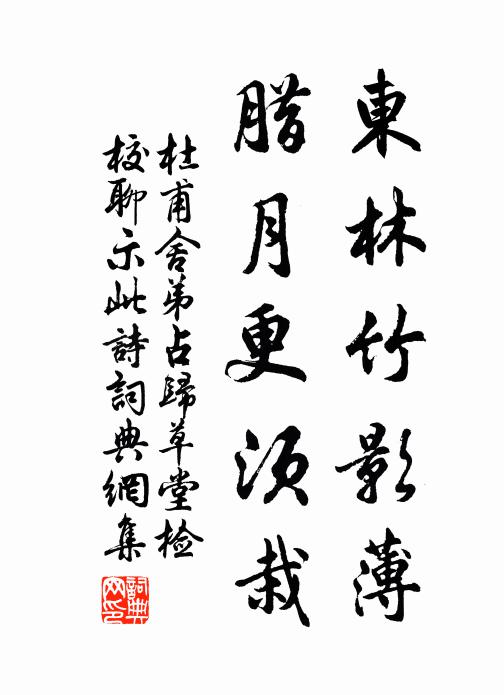 東林竹影薄
腊月更須栽
杜甫舍弟占歸草堂檢
校聊示此詩詞典網集
詞典
网印